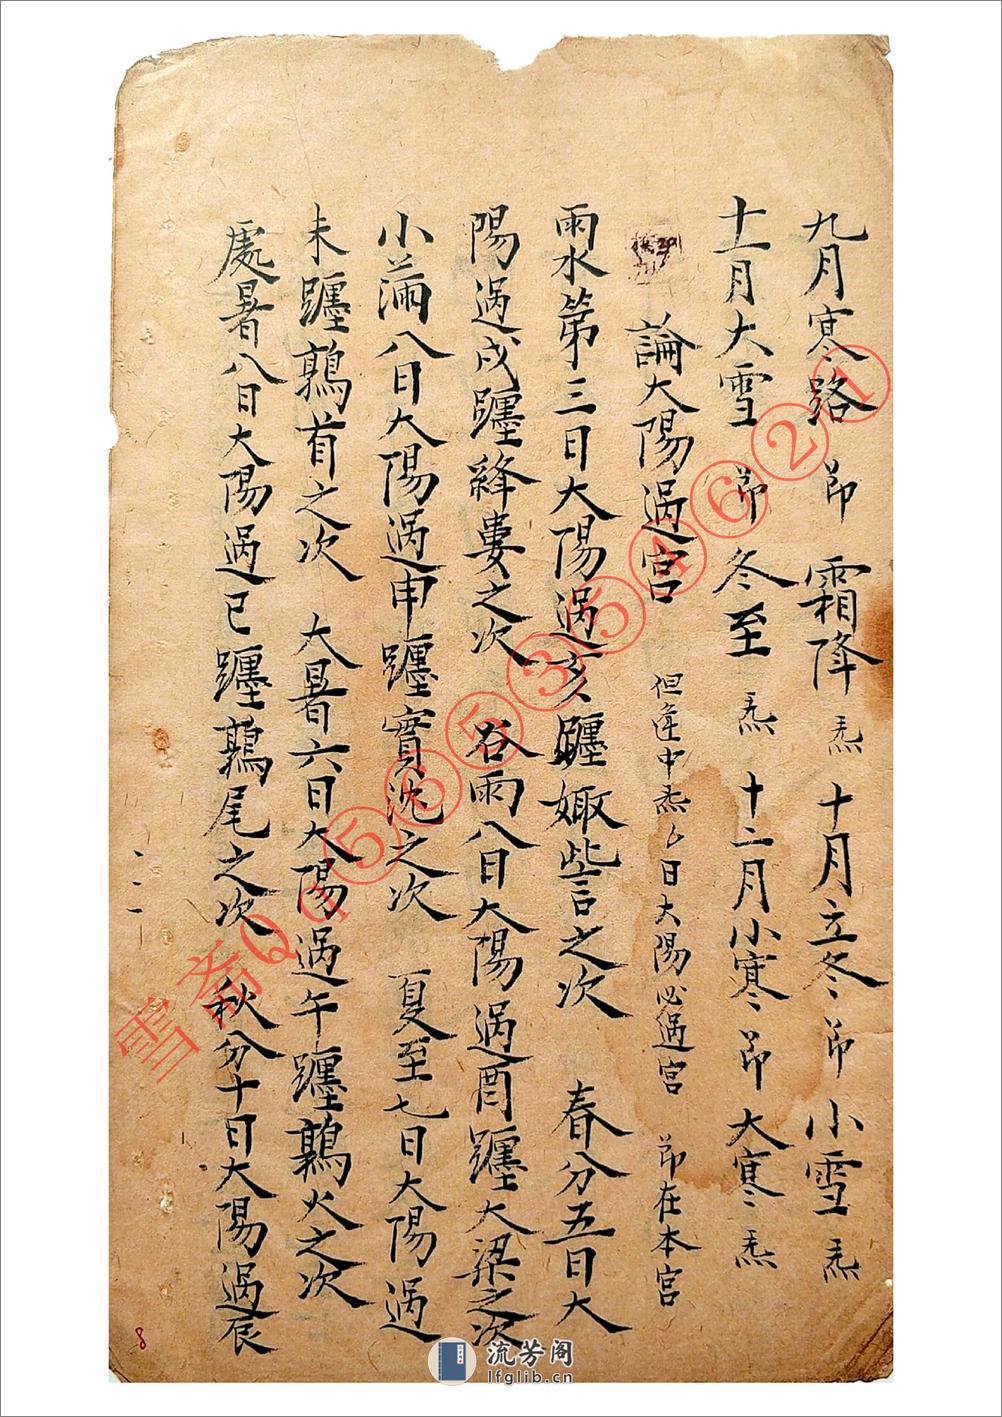 九月寒路 節 霜降 炁 十月立冬 節 小雪 炁
十一月大雪 節 冬至 炁 十二月小寒 節 大寒 炁
論大陽過宮 但逢中炁 日大陽必過宮 節在本宮
雨水第三日大陽過亥躔娵訾之次 春分五日大
陽過戌躔絳婁之次 谷雨八日大陽過酉躔大梁之次
小滿八日大陽過申躔實沈之次 夏至七日大陽過
未躔鶉首之次 大暑六日大陽過午躔鶉火之次
處暑八日大陽過巳躔鶉尾之次 秋分十日大陽過辰
8
雪斋Qq⑤⑥⑤③⑤④⑥②①
流芳阁
lfglib.cn